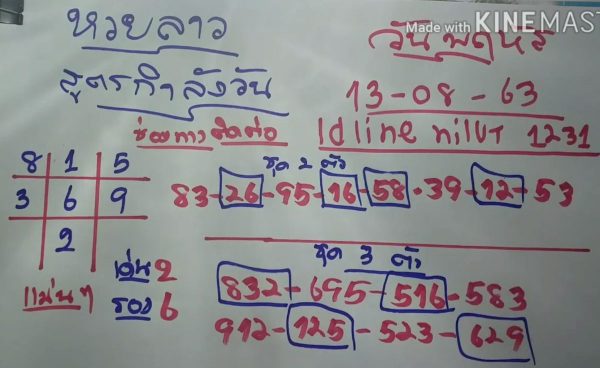 Made with KINEMAS
หวยลาว
วันพฤหัส
สูตรกำลังวัน
13-08-63
ช่องทางติดต่อ
Id line nilut 1231
8 1 5
3 6 9
2
ชุด 2 ตัว
83-26-95-16-58-39-12-53
แม่นๆ
เด่น2
รอง6
ชุด 3 ตัว
832-695-516-583
912-125-523-629